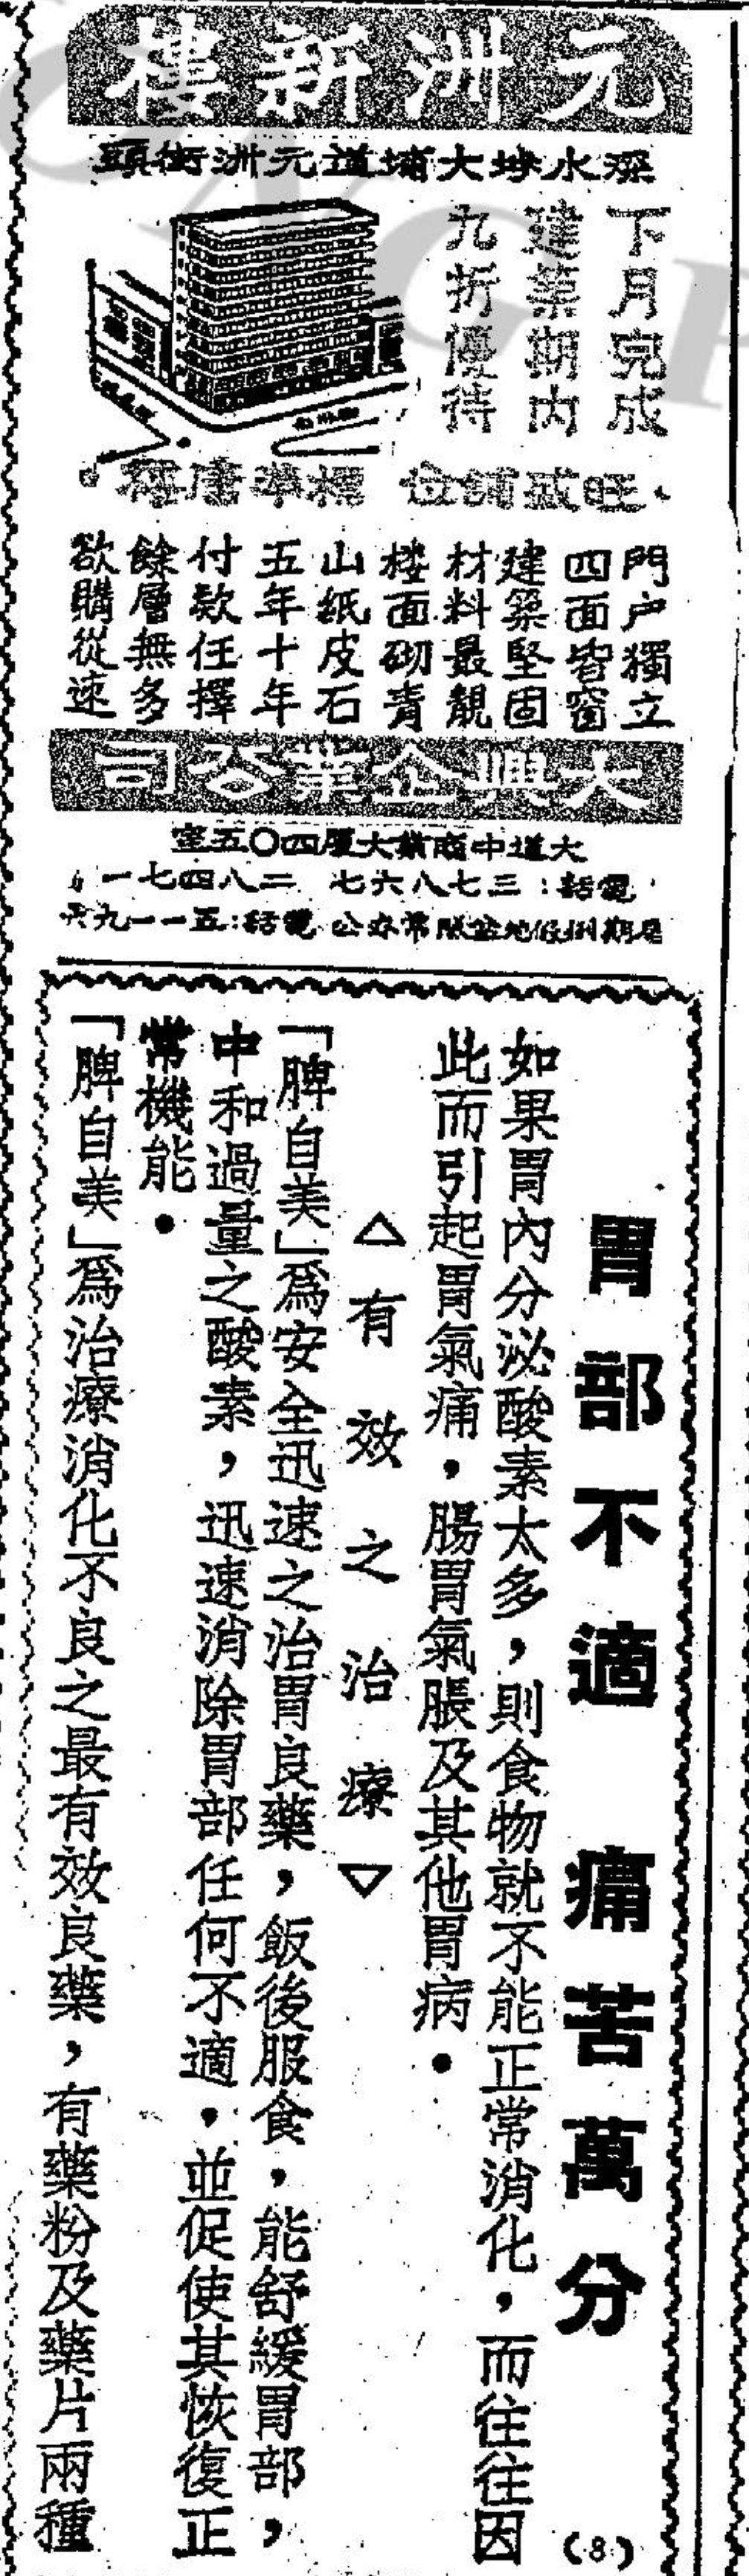 元洲新樓
深水埗大埔道元洲街頭
下月完成
建築期內
九折優待
旺盛舖位 標準唐樓
門户獨立
四面皆窗
建築堅固
材料最靚
樓面砌青
山紙皮石
五年十年
付款任擇
餘層無多
欲購從速
大興企業公司
大道中商業大厦四〇五室
電話：三七八六七 二八四七一
星期例假地盆照常办公 電話：五一一九六
胃部不適 痛苦萬分
如果胃內分泌酸素太多，則食物就不能正常消化，而往往因
此而引起胃氣痛，腸胃氣脹及其他胃病．
△有效之治療▽
「脾自美」爲安全迅速之治胃良藥，飯後服食，能舒緩胃部，
中和過量之酸素，迅速消除胃部任何不適，並促使其恢復正
常機能．
「脾自美」爲治療消化不良之最有效良藥，有藥粉及藥片兩種
(8)